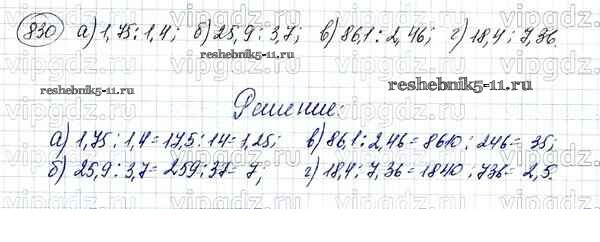 830 а) 1,75 : 1,4; б) 25,9 : 3,7; в) 86,1 : 2,46; г) 18,4 : 7,36.
reshebnik5-11.ru
reshebnik5-11.ru
Решение:
а) 1,75 : 1,4 = 17,5 : 14 = 1,25; в) 86,1 : 2,46 = 8610 : 246 = 35;
б) 25,9 : 3,7 = 259 : 37 = 7; г) 18,4 : 7,36 = 1840 : 736 = 2,5.
vipgdz.com